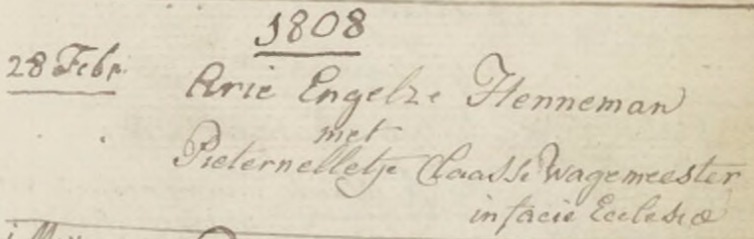 1808
28 Febr. Arie Engelze Henneman
met
Pieternelletje Claasse Wagemeester
in facie Ecclesiæ